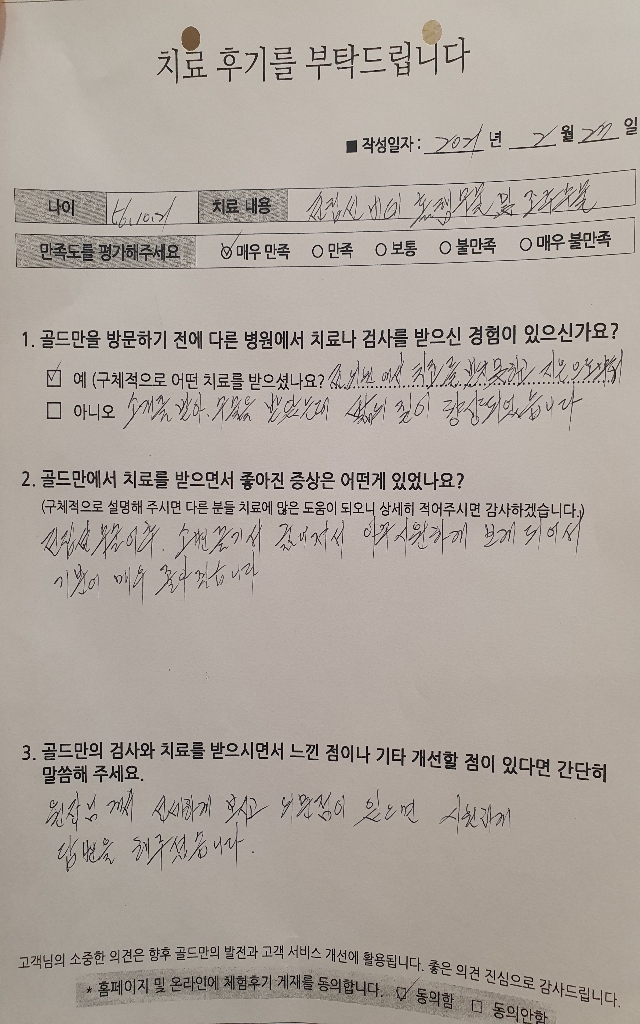 치료 후기를 부탁드립니다
■ 작성일자 : 2021 년 2 월 27 일
나이 치료 내용 전립선 비대 수술 및 조루수술
만족도를 평가해주세요 매우 만족 ○ 만족 ○ 보통 ○ 불만족 ○ 매우 불만족
1. 골드만을 방문하기 전에 다른 병원에서 치료나 검사를 받으신 경험이 있으신가요?
☑ 예 (구체적으로 어떤 치료를 받으셨나요? 에서 치료를 받지 못하고 지인으로부터
□ 아니오 소개를 받아 수술을 받았는데 삶의 질이 향상되었습니다
2. 골드만에서 치료를 받으면서 좋아진 증상은 어떤게 있었나요?
(구체적으로 설명해 주시면 다른 분들 치료에 많은 도움이 되오니 상세히 적어주시면 감사하겠습니다.)
전립선 수술이후 소변줄기가 굵어져서 아주 시원하게 보게 되어서
기분이 매우 좋아졌습니다
3. 골드만의 검사와 치료를 받으시면서 느낀 점이나 기타 개선할 점이 있다면 간단히
말씀해 주세요.
원장님께서 섬세하게 보시고 의문점이 있으면 시원하게
답변을 해주셨습니다.
고객님의 소중한 의견은 향후 골드만의 발전과 고객 서비스 개선에 활용됩니다. 좋은 의견 진심으로 감사드립니다.
* 홈페이지 및 온라인에 체험후기 게재를 동의합니다. ☑ 동의함 □ 동의안함